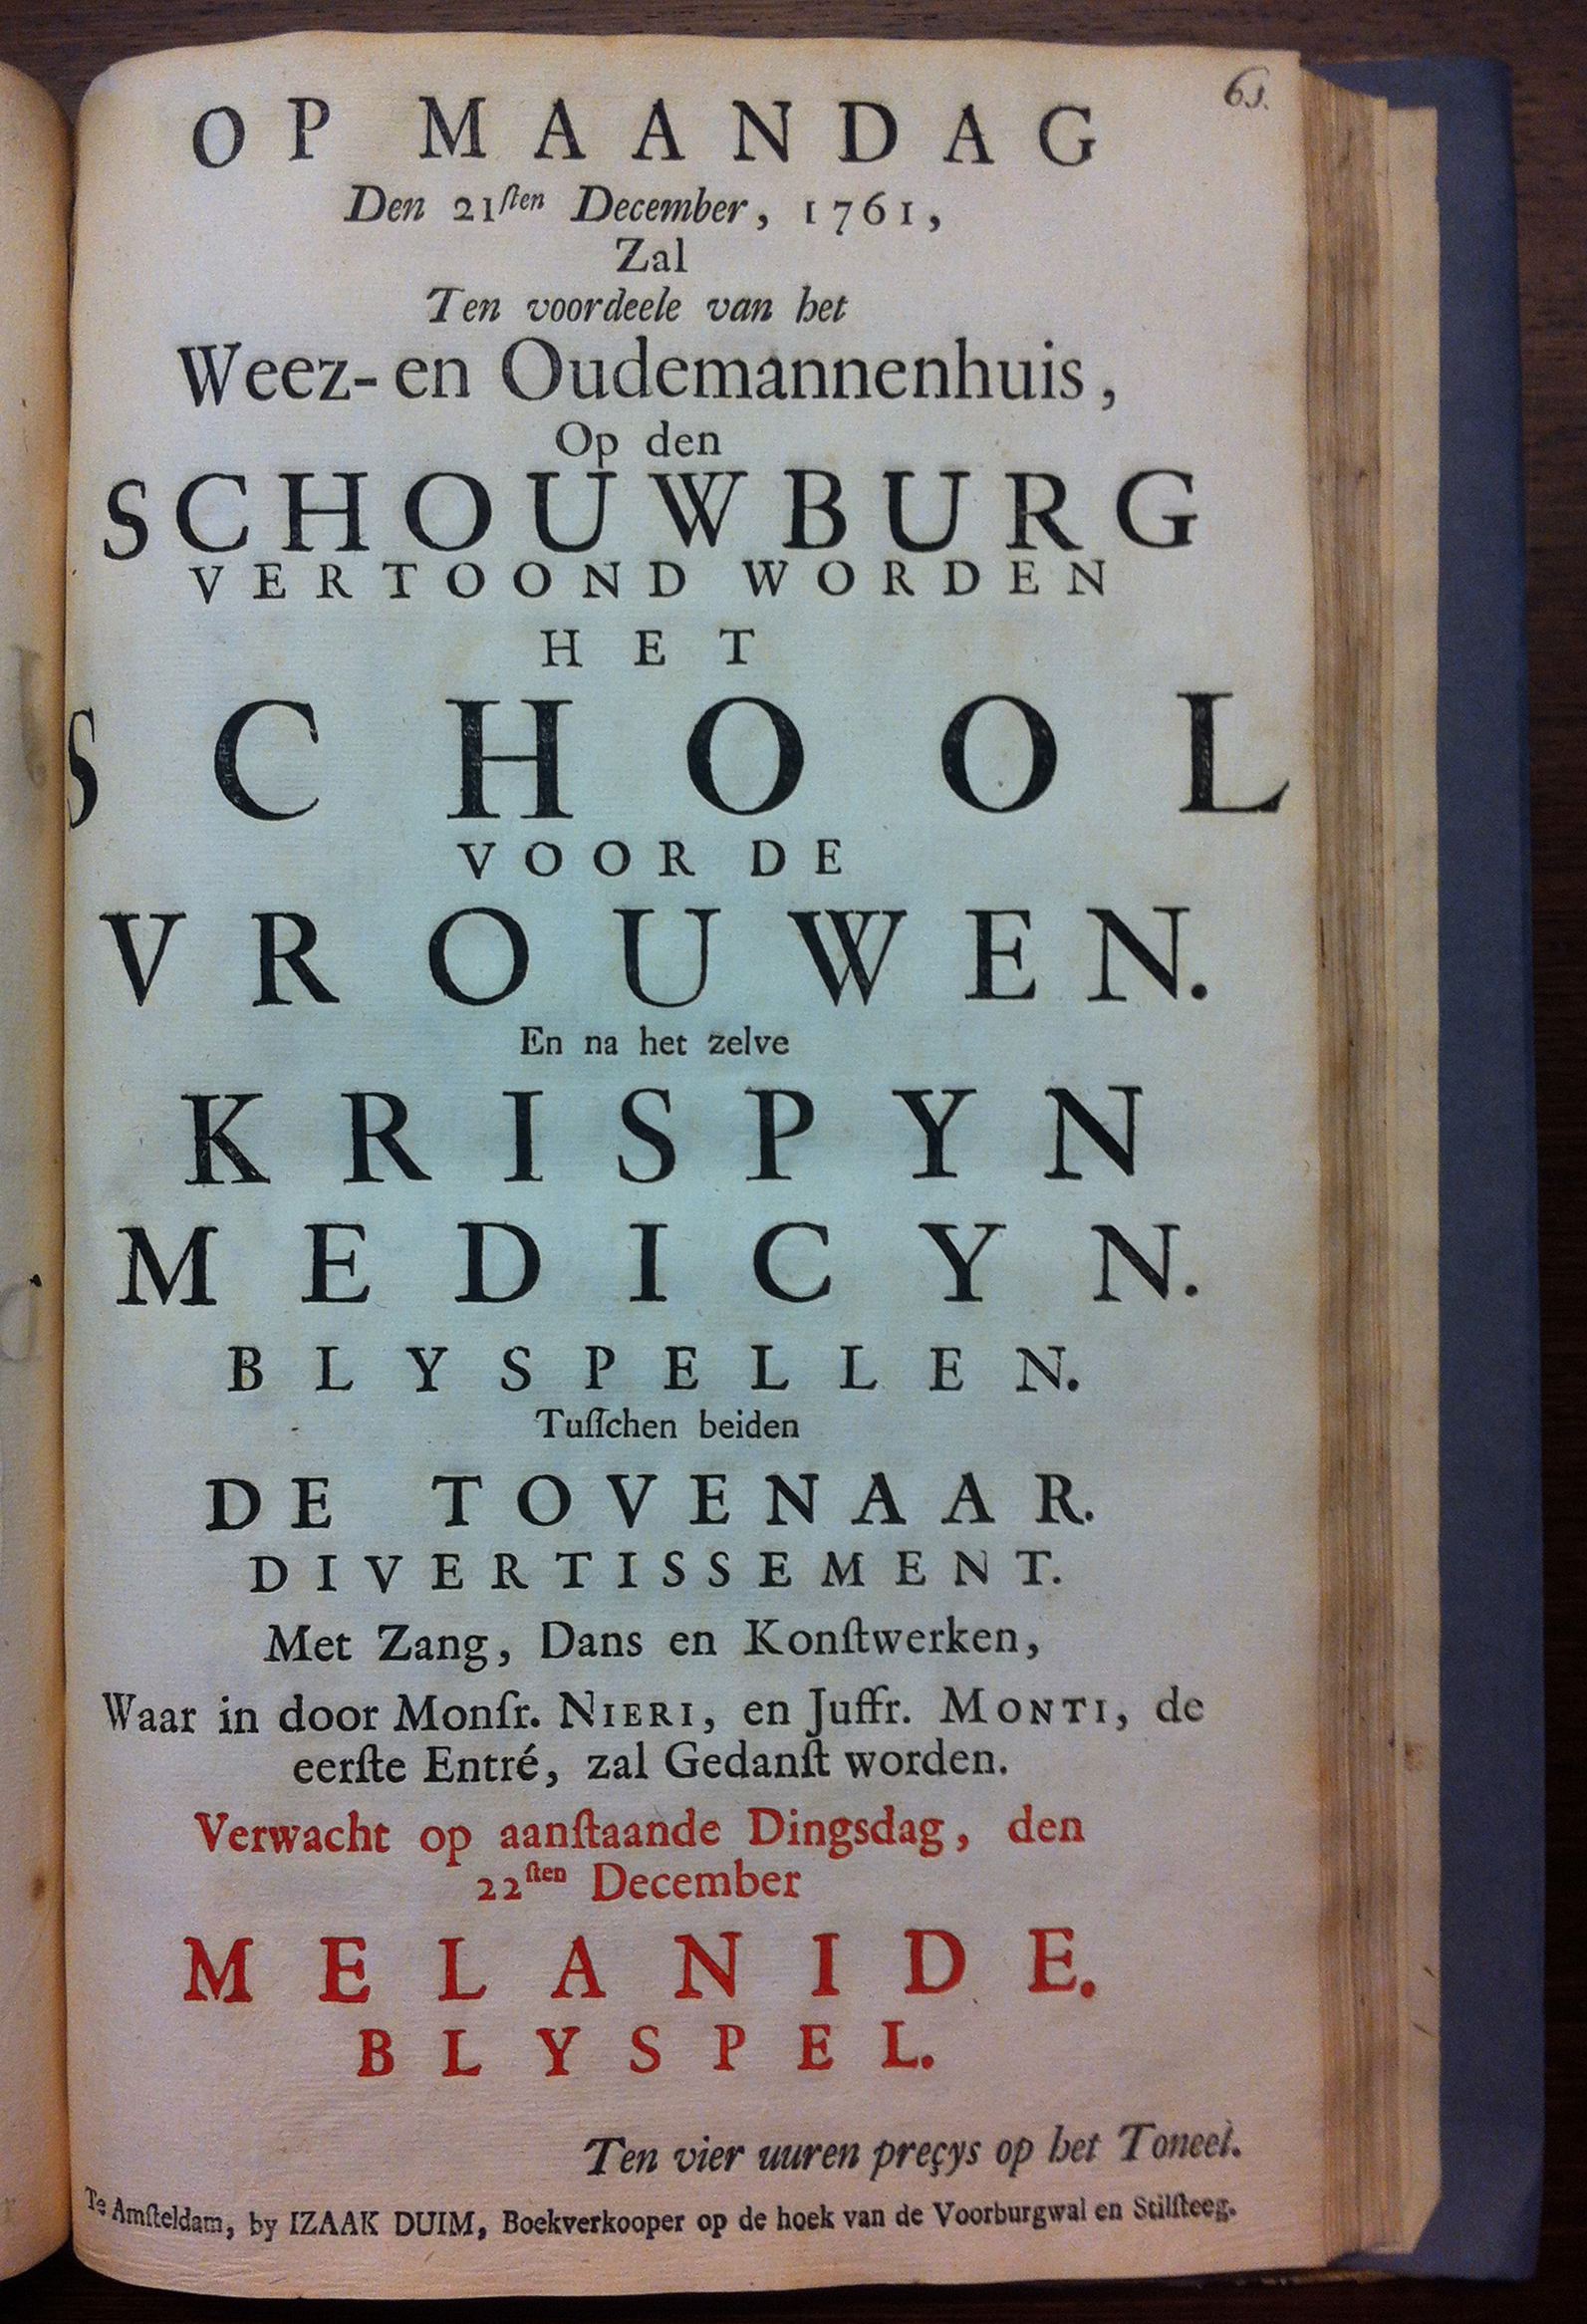 61.
OP MAANDAG
Den 21ſten December, 1761,
Zal
Ten voordeele van het
Weez- en Oudemannenhuis,
Op den
SCHOUWBURG
VERTOOND WORDEN
HET
SCHOOL
VOOR DE
VROUWEN.
En na het zelve
KRISPYN
MEDICYN.
BLYSPELLEN.
Tuſſchen beiden
DE TOVENAAR.
DIVERTISSEMENT.
Met Zang, Dans en Konſtwerken,
Waar in door Monſr. NIERI, en Juffr. MONTI, de
eerſte Entré, zal Gedanſt worden.
Verwacht op aanſtaande Dingsdag, den
22ſten December
MELANIDE.
BLYSPEL.
Ten vier uuren preçys op het Toneel.
Te Amſteldam, by IZAAK DUIM, Boekverkooper op de hoek van de Voorburgwal en Stilſteeg.